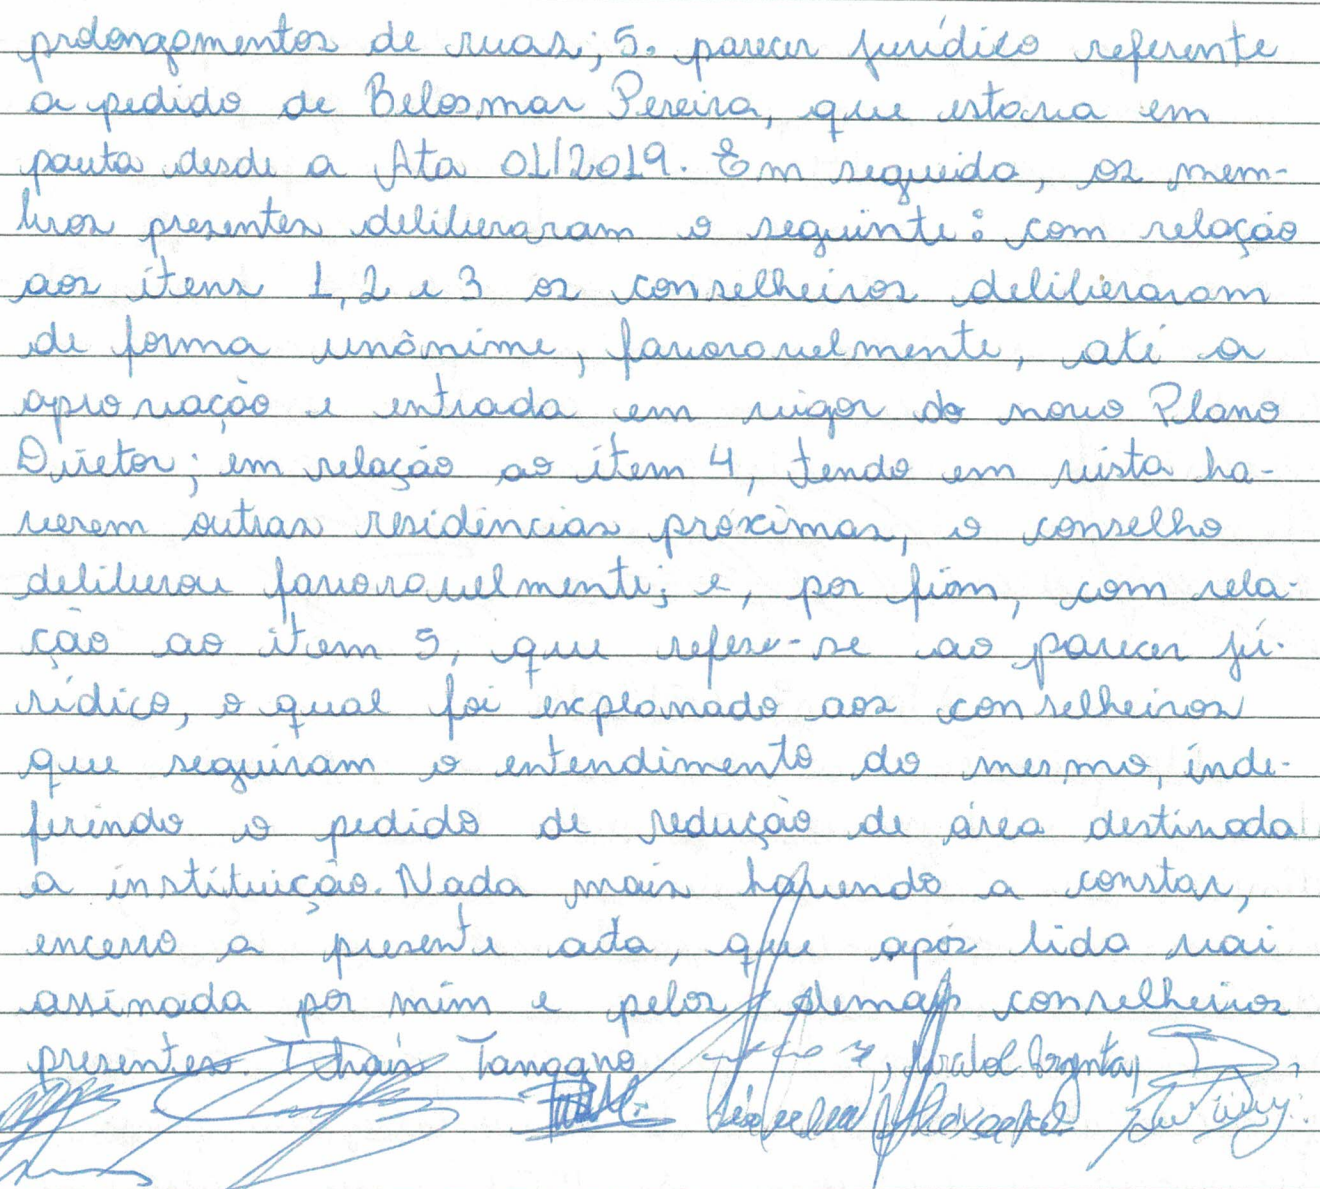 prolongamentos de ruas; 5. parecer jurídico referente
a pedido de Belosmar Pereira, que estava em
pauta desde a Ata 01/2019. Em seguida, os mem-
bros presentes deliberaram o seguinte: com relação
aos ítens 1, 2 e 3 os conselheiros deliberaram
de forma unânime, favoravelmente, até a
aprovação e entrada em vigor do novo Plano
Diretor; em relação ao ítem 4, tendo em vista ha-
verem outras residências próximas, o conselho
deliberou favoravelmente; e, por fim, com rela-
ção ao ítem 5, que refere-se ao parecer ju-
rídico, o qual foi explanado aos conselheiros
que seguiram o entendimento do mesmo, inde-
ferindo o pedido de redução de área destinada
a instituição. Nada mais havendo a constar,
encerro a presente ata, que após lida vai
assinada por mim e pelos demais conselheiros
presentes. Thaís